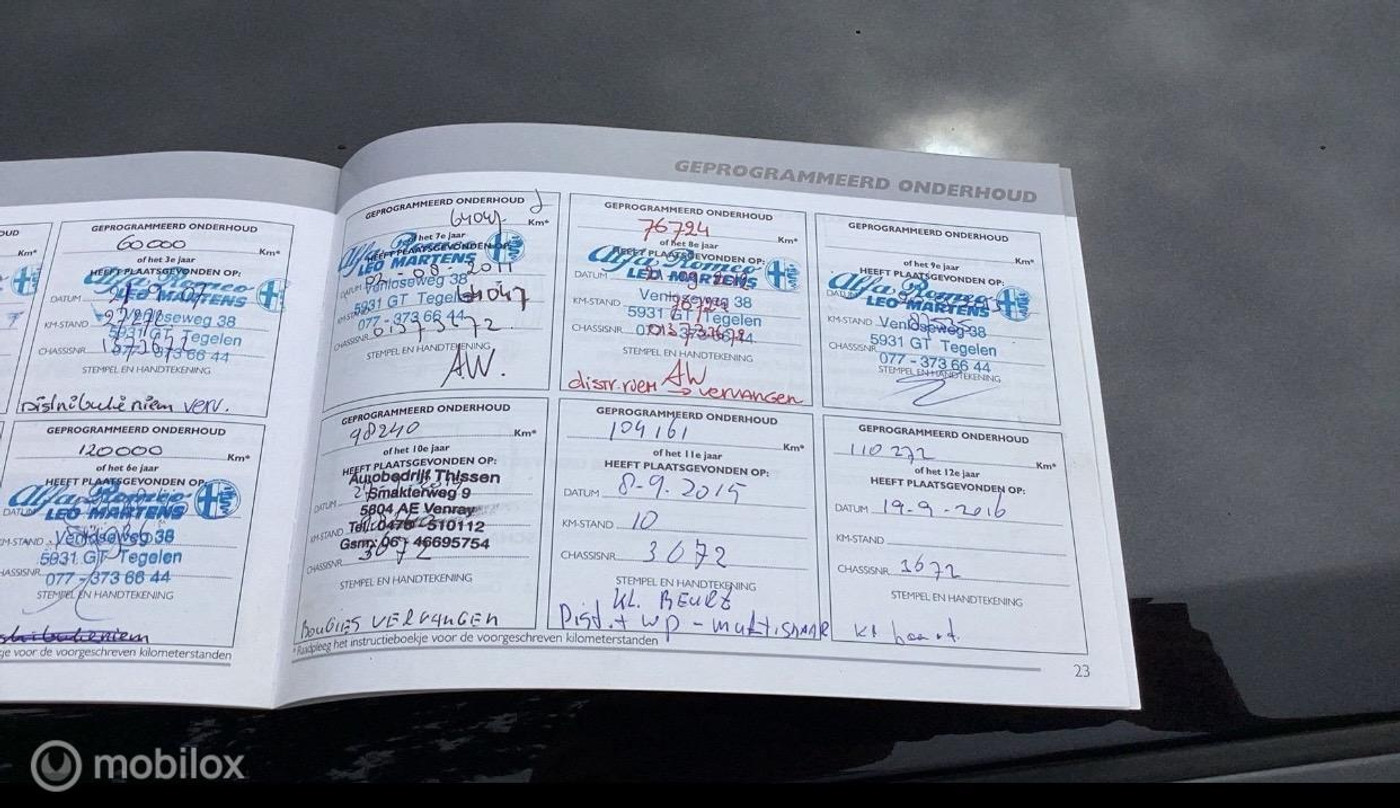 GEPROGRAMMEERD ONDERHOUD
OUD
GEPROGRAMMEERD ONDERHOUD
60000 Km*
of het 3e jaar
HEEFT PLAATSGEVONDEN OP:
Alfa Romeo
LEO MARTENS
DATUM
Venloseweg 38
KM-STAND
5931 GT Tegelen
CHASSISNR.
077 - 373 66 44
STEMPEL EN HANDTEKENING
verv.
GEPROGRAMMEERD ONDERHOUD
120000 Km*
of het 6e jaar
HEEFT PLAATSGEVONDEN OP:
Alfa Romeo
LEO MARTENS
KM-STAND
Venloseweg 38
5931 GT Tegelen
077 - 373 66 44
STEMPEL EN HANDTEKENING
je voor de voorgeschreven kilometerstanden
GEPROGRAMMEERD ONDERHOUD
64047 Km*
of het 7e jaar
HEEFT PLAATSGEVONDEN OP:
Alfa Romeo
LEO MARTENS
DATUM 02-08-2011
Venloseweg 38
KM-STAND 64047
5931 GT Tegelen
077 - 373 66 44
CHASSISNR.
STEMPEL EN HANDTEKENING
AW.
GEPROGRAMMEERD ONDERHOUD
76724 Km*
of het 8e jaar
HEEFT PLAATSGEVONDEN OP:
Alfa Romeo
LEO MARTENS
DATUM
Venloseweg 38
KM-STAND 76724
5931 GT Tegelen
CHASSISNR.
STEMPEL EN HANDTEKENING
AW
distr.riem → vervangen
GEPROGRAMMEERD ONDERHOUD
Km*
of het 9e jaar
HEEFT PLAATSGEVONDEN OP:
Alfa Romeo
LEO MARTENS
KM-STAND
Venloseweg 38
5931 GT Tegelen
CHASSISNR.
077 - 373 66 44
STEMPEL EN HANDTEKENING
GEPROGRAMMEERD ONDERHOUD
98240 Km*
of het 10e jaar
HEEFT PLAATSGEVONDEN OP:
Autobedrijf Thissen
Smakterweg 9
DATUM
5804 AE Venray
KM-STAND
Tel. 0478 - 510112
Gsm: 06 - 46695754
CHASSISNR. 3672
STEMPEL EN HANDTEKENING
BOUGIES VERVANGEN
GEPROGRAMMEERD ONDERHOUD
104161 Km*
of het 11e jaar
HEEFT PLAATSGEVONDEN OP:
DATUM 8-9.2015
KM-STAND 10
CHASSISNR. 3672
STEMPEL EN HANDTEKENING
KL. BEURT
Dist.+ WP - multisnaar
GEPROGRAMMEERD ONDERHOUD
110272 Km*
of het 12e jaar
HEEFT PLAATSGEVONDEN OP:
DATUM 19-9-2016
KM-STAND
CHASSISNR. 3672
STEMPEL EN HANDTEKENING
*Raadpleeg het instructieboekje voor de voorgeschreven kilometerstanden
23
mobilox